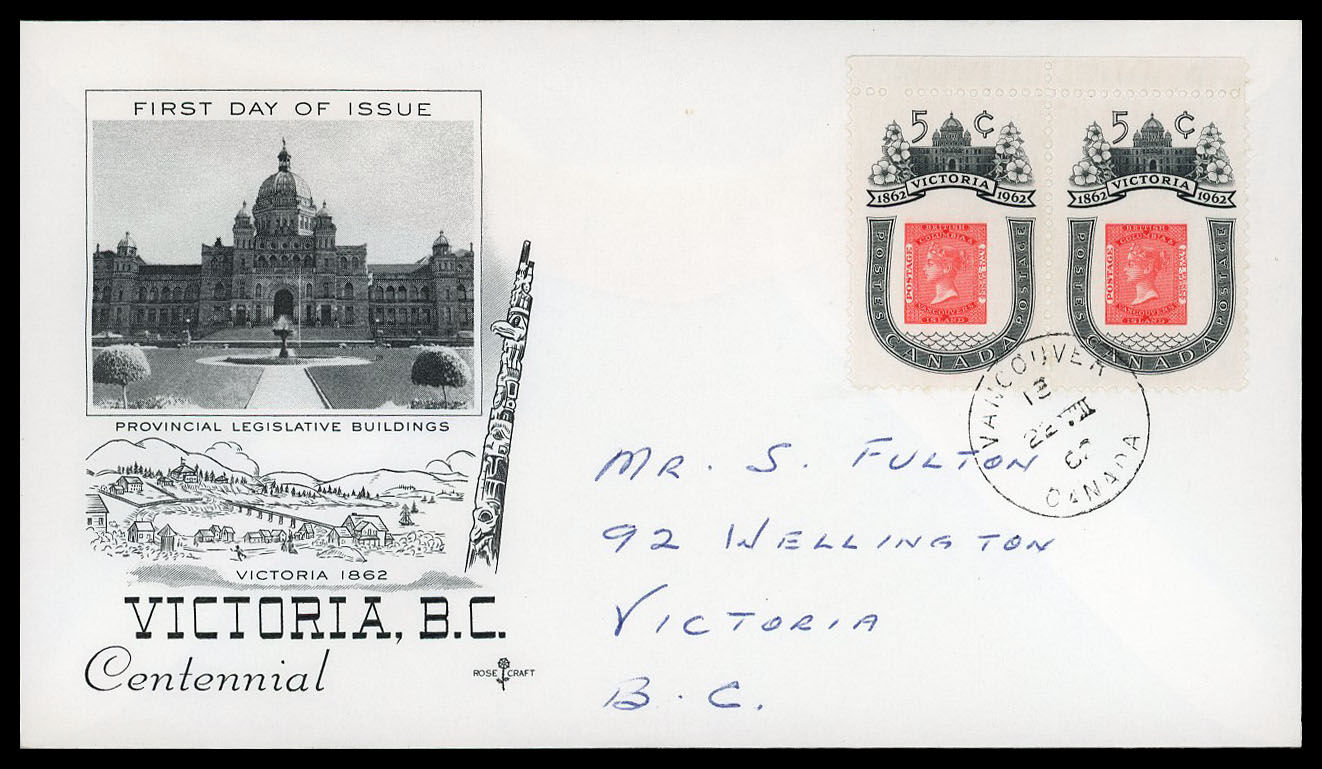 FIRST DAY OF ISSUE
PROVINCIAL LEGISLATIVE BUILDINGS
VICTORIA 1862
VICTORIA, B.C.
Centennial
ROSE CRAFT
5 ¢
VICTORIA
1862 1962
POSTAGE
BRITISH
COLUMBIA &
VANCOUVERS
ISLAND
POSTES CANADA POSTAGE
5 ¢
VICTORIA
1862 1962
POSTAGE
BRITISH
COLUMBIA &
VANCOUVERS
ISLAND
POSTES CANADA POSTAGE
VANCOUVER
22 VIII
CANADA
MR. S. FULTON
92 WELLINGTON
VICTORIA
B.C.